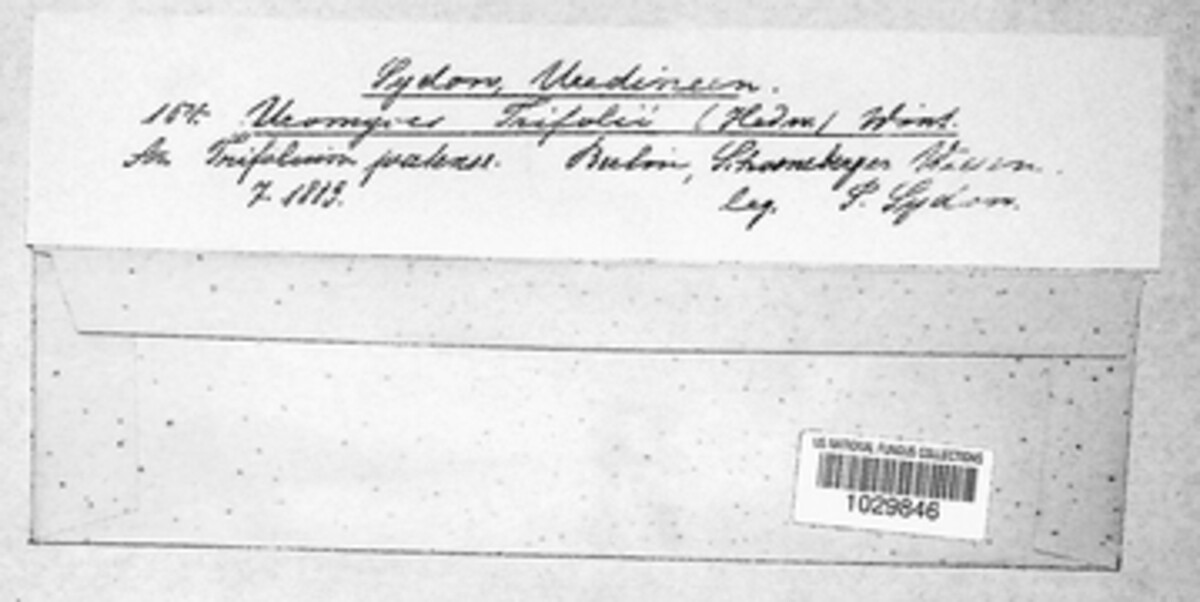 Sydow, Uredineen.
154. Uromyces Trifolii (Hedw.) Wint.
An Trifolium pratense. Berlin, Schoeneberger Wiesen.
7. 1883.
leg. P. Sydow.
US NATIONAL FUNGUS COLLECTIONS
1029846